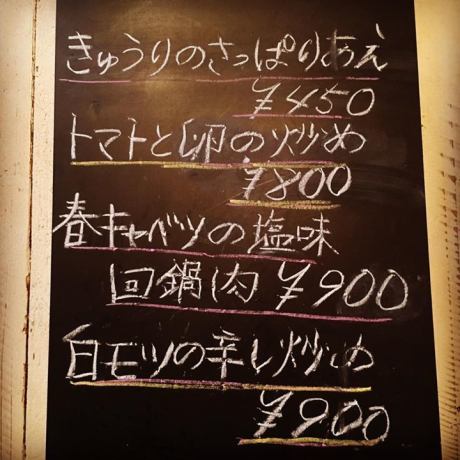 きゅうりのさっぱりあえ
¥450
トマトと卵の炒め
¥800
春キャベツの塩味
回鍋肉 ¥900
白モツの辛し炒め
¥900